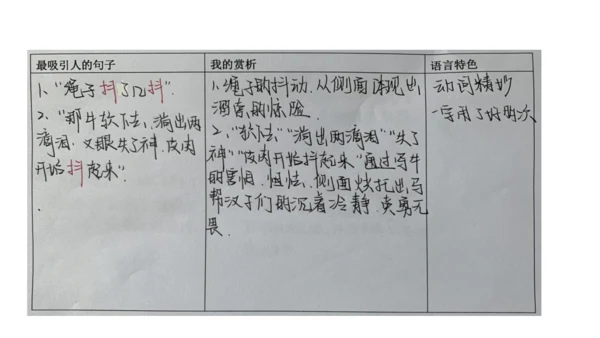 最吸引人的句子
我的赏析
语言特色
1、“绳子抖了几抖”.
2、“那牛软下去,淌出两
滴泪,又眼失了神,皮肉
开始抖起来”
1、绳子的抖动,从侧面体现出
溜索的惊险.
2、“软下去”“淌出两滴泪”“失了
神”“皮肉开始抖起来”通过写牛
的害怕、胆怯、侧面烘托出马
帮汉子们的沉着冷静、英勇无
畏.
动词精妙
一字用了好几次